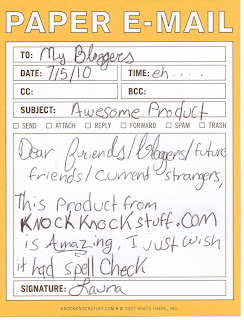 PAPER E-MAIL
TO: My Bloggers
DATE: 7/5/10 TIME: eh....
CC: BCC:
SUBJECT: Awesome Product
SEND ATTACH REPLY FORWARD SPAM TRASH
Dear friends/blogers/future
friends/current strangers,
This Product from
KNOCKKNOCKstuff.com
is Amazing, I just wish
it had spell check
SIGNATURE: Laura
KNOCKKNOCKSTUFF.COM • © 2007 WHO'S THERE, INC.